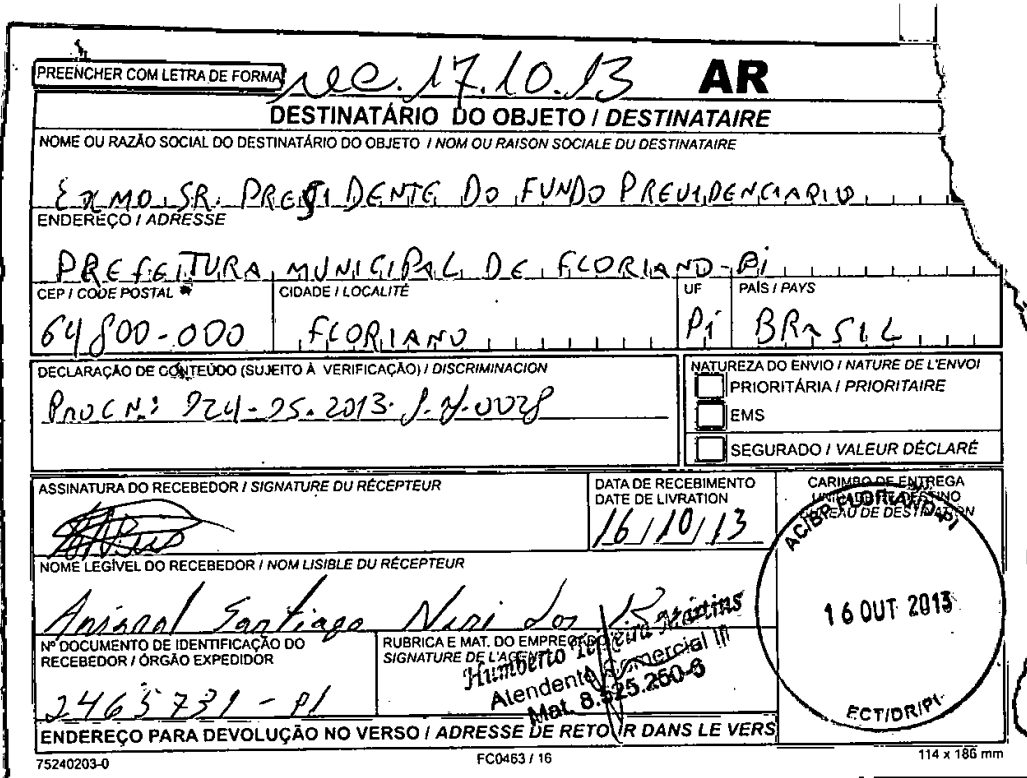 PREENCHER COM LETRA DE FORMA
rec. 17.10.13
AR
DESTINATÁRIO DO OBJETO / DESTINATAIRE
NOME OU RAZÃO SOCIAL DO DESTINATÁRIO DO OBJETO / NOM OU RAISON SOCIALE DU DESTINATAIRE
EXMO SR. PRESIDENTE DO FUNDO PREVIDENCIARIO
ENDEREÇO / ADRESSE
PREFEITURA MUNICIPAL DE FLORIANO-Pi
CEP / CODE POSTAL
CIDADE / LOCALITÉ
UF
PAÍS / PAYS
64800-000 FLORIANO Pi BRASIL
DECLARAÇÃO DE CONTEÚDO (SUJEITO À VERIFICAÇÃO) / DISCRIMINACION
NATUREZA DO ENVIO / NATURE DE L'ENVOI
PRIORITÁRIA / PRIORITAIRE
PROC N: 924-25.2013.
EMS
SEGURADO / VALEUR DÉCLARÉ
ASSINATURA DO RECEBEDOR / SIGNATURE DU RÉCEPTEUR
DATA DE RECEBIMENTO
DATE DE LIVRATION
16/10/13
CARIMBO DE ENTREGA
UNIDADE DE DESTINO
BUREAU DE DESTINATION
AC/BP FLORIANO-PI
16 OUT 2013
ECT/DR/PI
NOME LEGÍVEL DO RECEBEDOR / NOM LISIBLE DU RÉCEPTEUR
Santiago
Nº DOCUMENTO DE IDENTIFICAÇÃO DO
RECEBEDOR / ÓRGÃO EXPEDIDOR
2465731 - PI
RUBRICA E MAT. DO EMPREGADO
SIGNATURE DE L'AGENT
Humberto Teixeira Martins
Atendente Comercial III
Mat. 8.525.250-6
ENDEREÇO PARA DEVOLUÇÃO NO VERSO / ADRESSE DE RETOUR DANS LE VERS
75240203-0
FC0463 / 16
114 x 186 mm